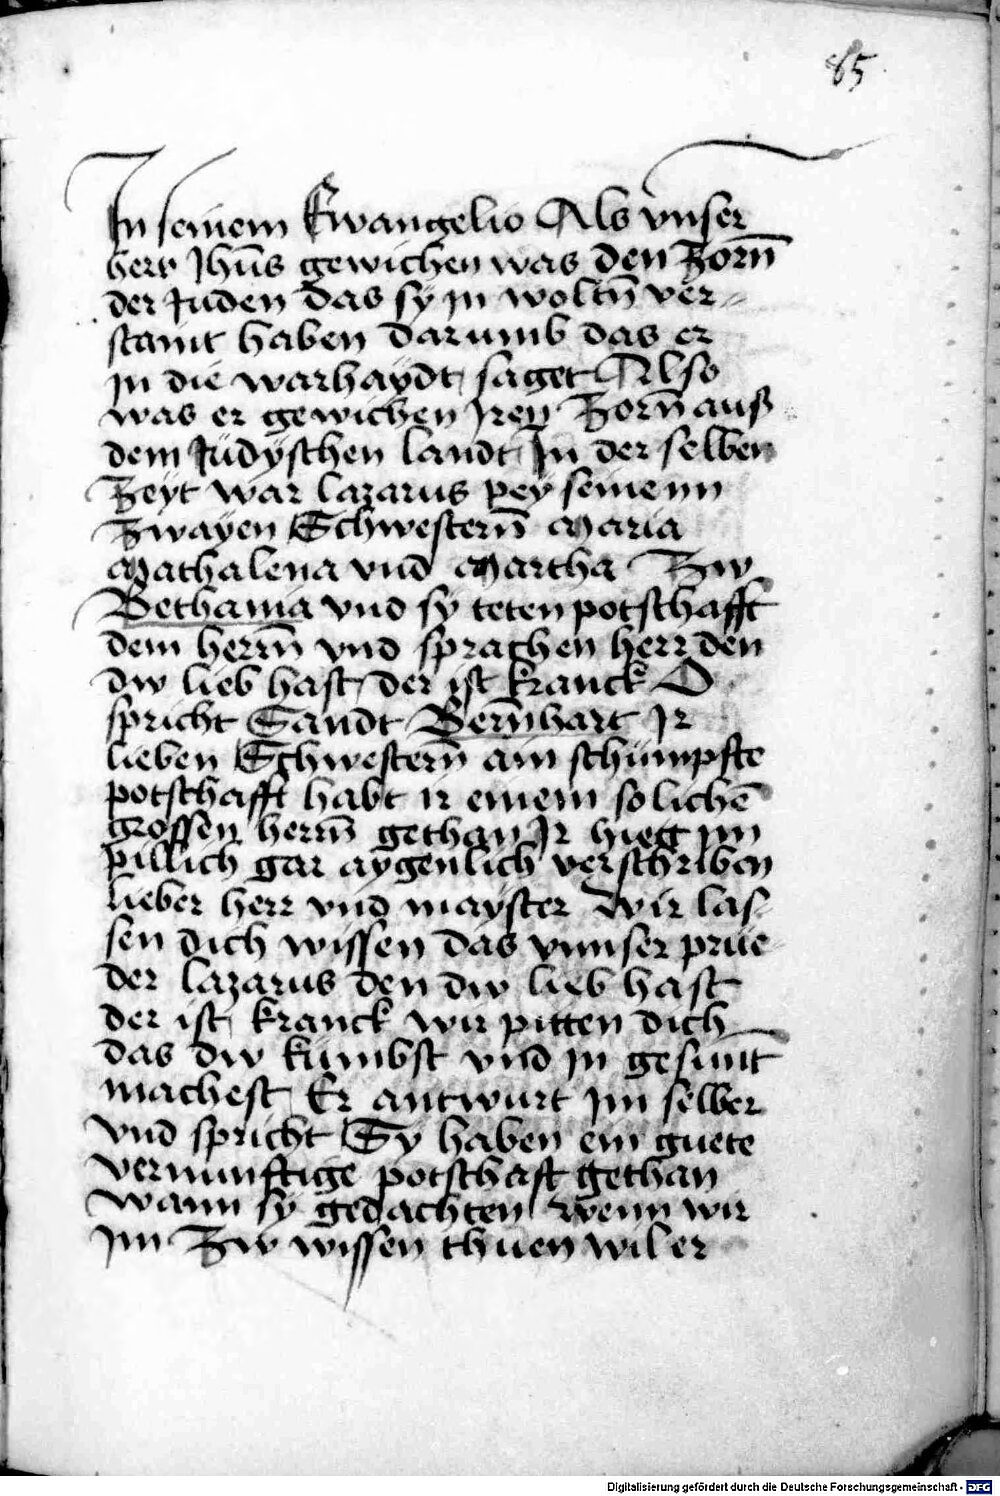 85
In seinem Ewangelio Als vnser
herr Jhūs gewichen was den Zorn̄
der Juden das sy in woltn̄ ver-
staint haben darumb das er
in die warhaÿdt saget Also
was er gewichen Iren Zorn̄ auß
dem Jüdÿschen landt In der selben
Zeyt war lazarus pey seinenn
Zwaÿen Schwestern̄ Maria
Mathalena vnd Martha Zw
Bethania vnd sy teten potschafft
dem herrn̄ vnd sprachen herr den
dw lieb hast der ist kranck O
spricht Sandt Bern̄hart Ir
lieben Schwestern̄ ain schümpfte
potschafft habt ir einem solichē
grossen herrn̄ gethan Ir hiett im
pillich gar aygenlich verschriben
lieber herr vnd maÿster Wir las-
sen dich wissen das vnnser prüe-
der lazarus den dw lieb hast
der ist kranck wir pitten dich
das dw kümbst vnd in gesunt
machest Er antwurt im selber
vnd spricht Sy haben ein guete
vernunftige potschaft gethan
wann sy gedachten wenn wir
im Zw wissen thuen wil er
Digitalisierung gefördert durch die Deutsche Forschungsgemeinschaft - DFG